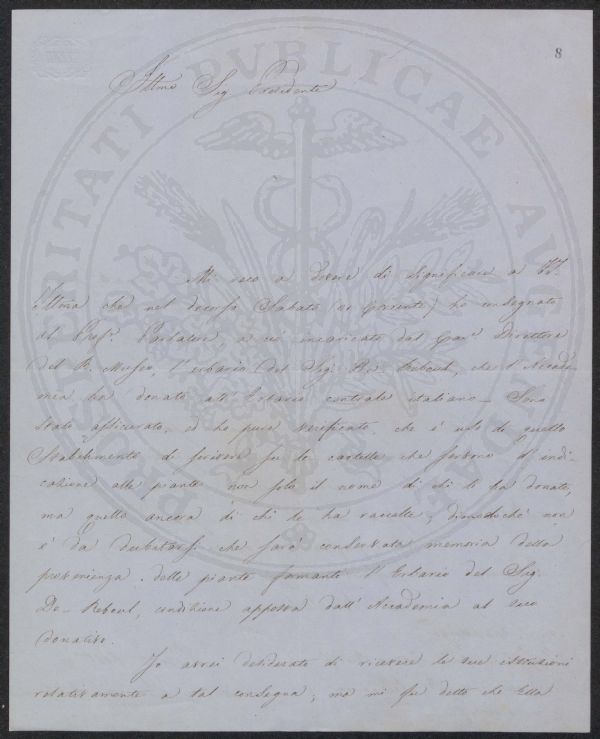 8
Illmo Sig. Presidente
Mi reco a dovere di significare a VS.
Illma che nel decorso Sabato (21 Corrente) ho consegnato
al Prof. Parlatore, a ciò incaricato dal Cavre Direttore
del R. Museo, l'erbario del Sig. De Reboul, che l'Accade-
mia ha donato all'Erbario centrale italiano – Sono
stato assicurato, ed ho pure verificato, che è uso di quello
Stabilimento di scrivere su le cartelle che servono d'indi-
cazione alle piante non solo il nome di chi le ha donate,
ma quello ancora di chi le ha raccolte; dimodochè non
è da dubitarsi che sarà conservata memoria della
provenienza delle piante formanti l'Erbario del Sig.
De-Reboul, condizione apposta dall'Accademia al suo
donativo.
Io avrei desiderato di ricevere le sue istruzioni
relativamente a tal consegna; ma mi fu detto che Ella
PROSPERITATI PUBLICAE AUGENDAE